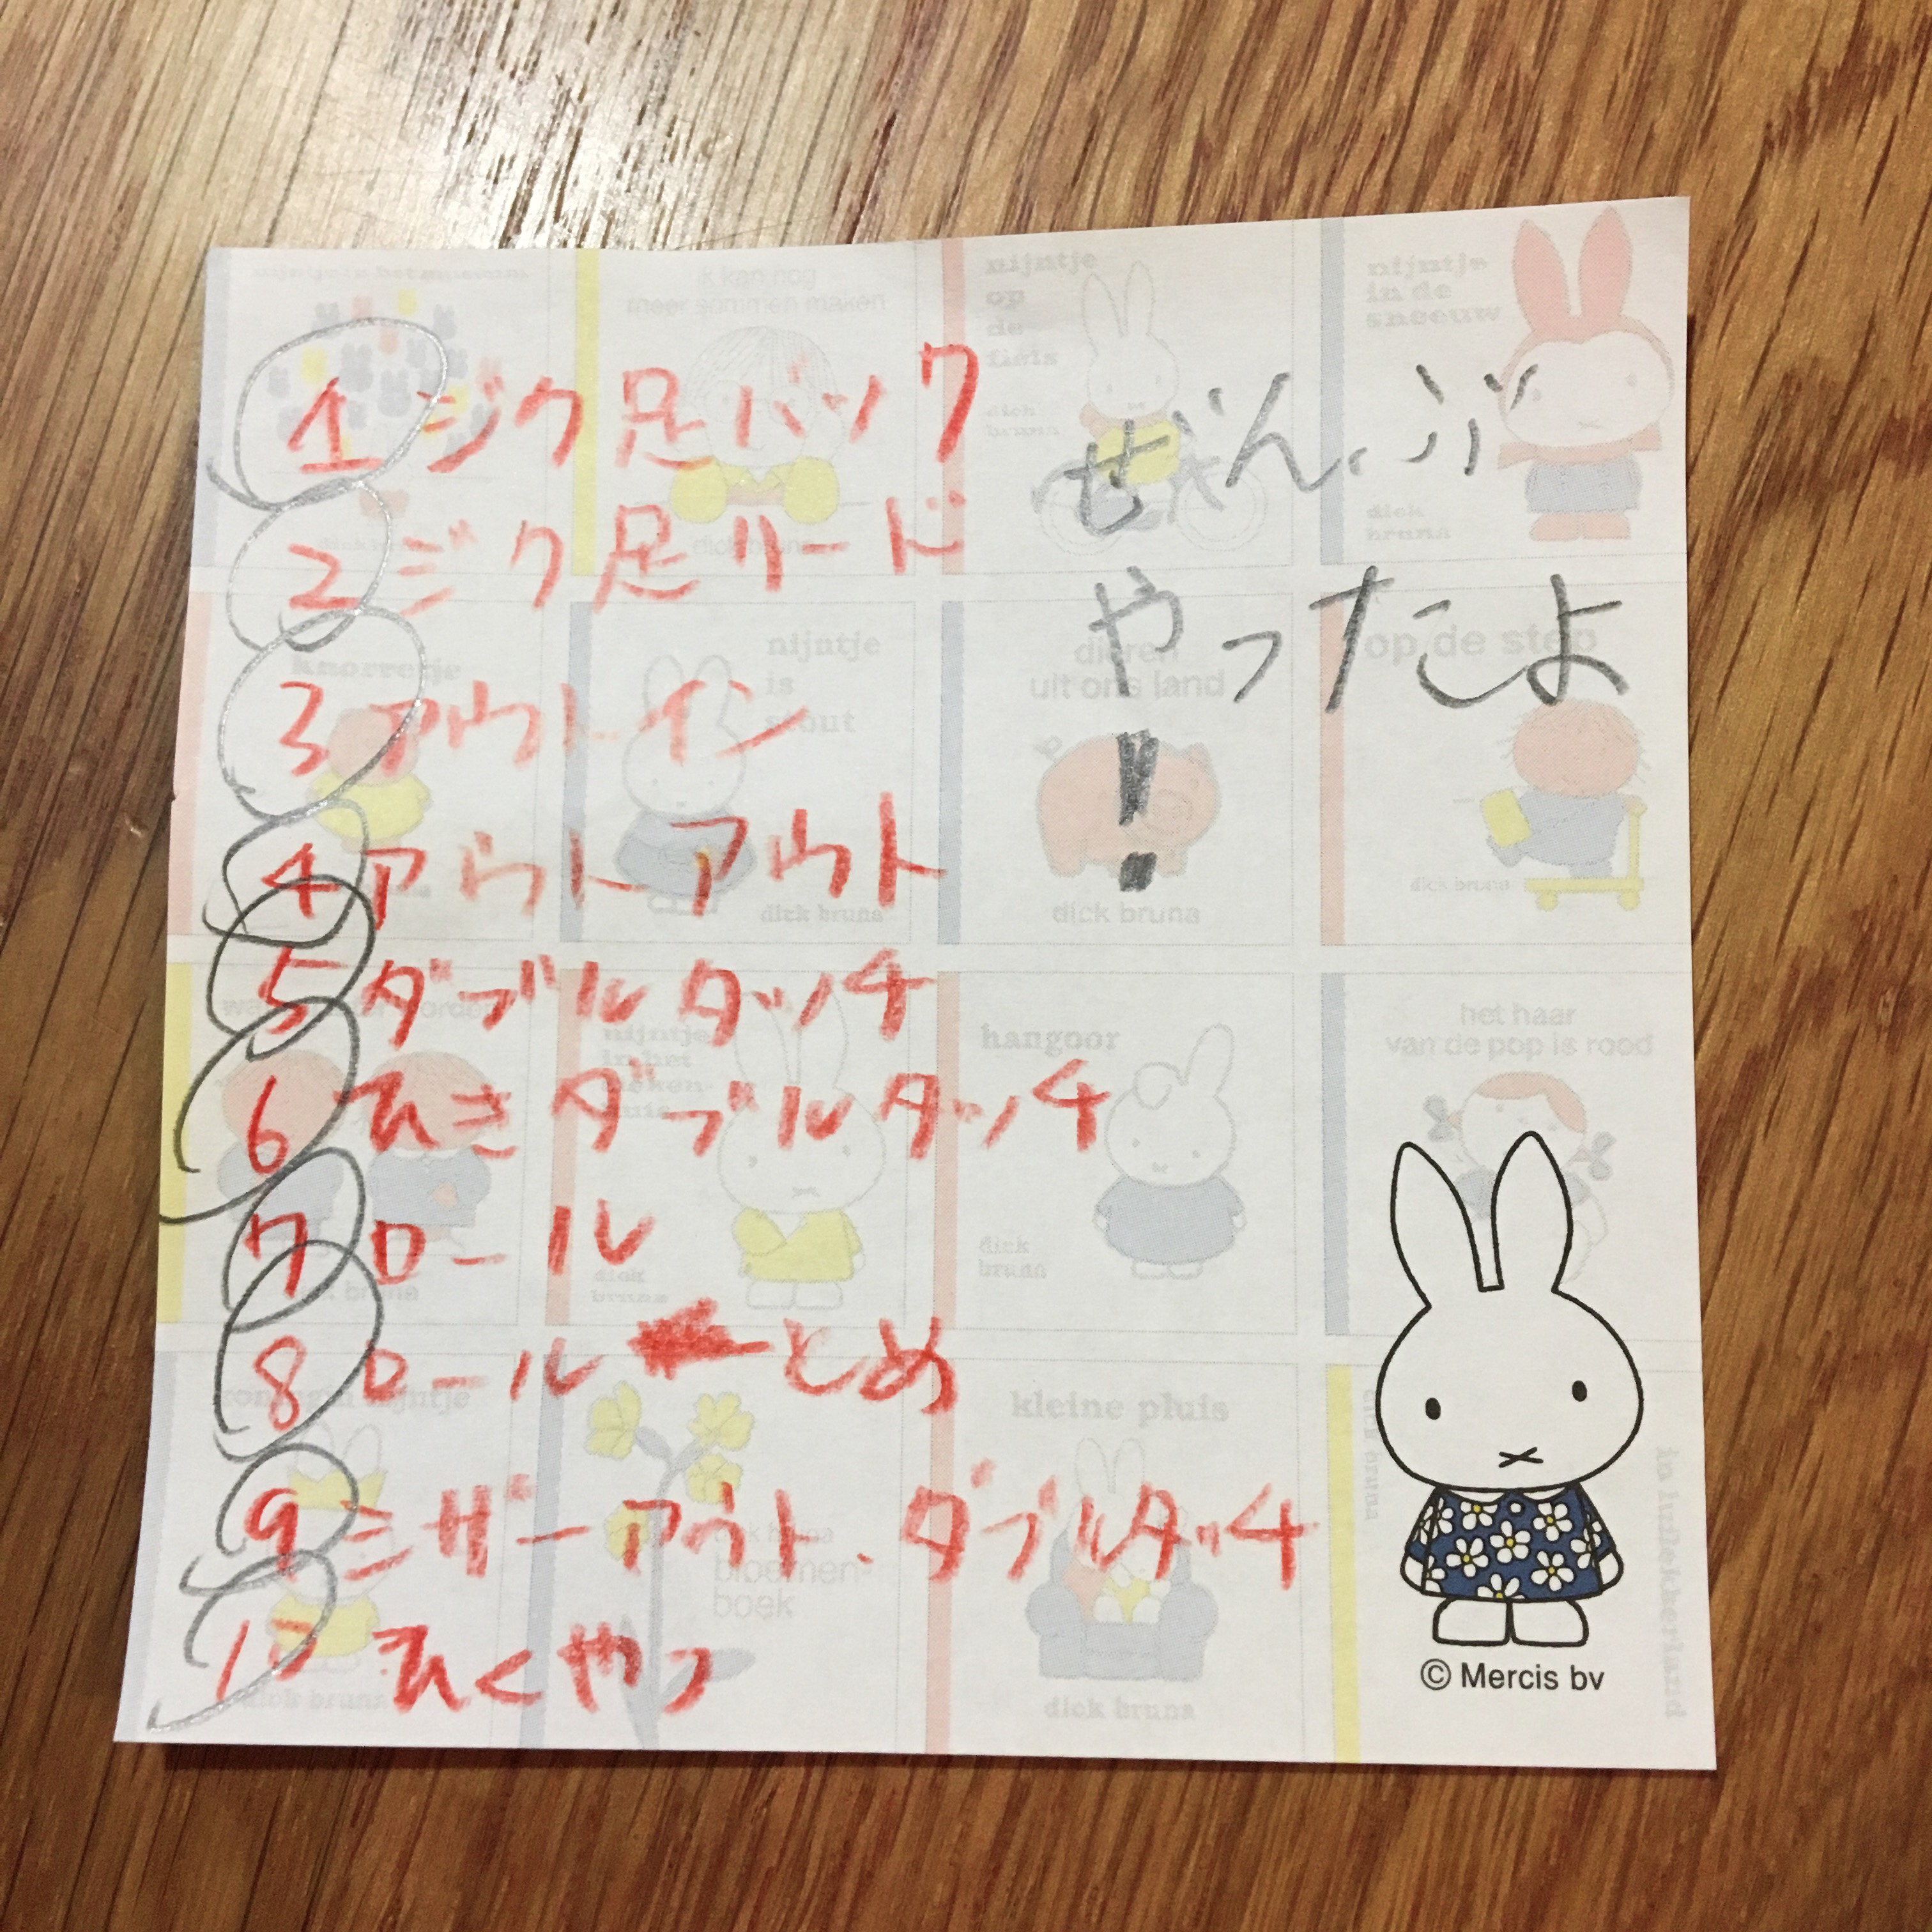 1 ジク足バック
2 ジク足リード
3 アウトイン
4 アウトアウト
5 ダブルタッチ
6 ひきダブルタッチ
7 ロール
8 ロールーとめ
9 シザーアウト、ダブルタッチ
10 ひくやつ
ぜんぶ
やったよ
!
nijntje in het museum
ik kan nog
meer sommen maken
dick bruna
nijntje
op
de
fiets
dick
bruna
nijntje
in de
sneeuw
dick
bruna
knorretje
nijntje
is
stout
dick bruna
dieren
uit ons land
dick bruna
op de step
dick bruna
nijntje
in het
dick
bruna
hangoor
dick
bruna
het haar
van de pop is rood
dick bruna
koningin nijntje
dick bruna
dick bruna
bloemen-
boek
kleine pluis
dick bruna
in luilekkerland
dick bruna
© Mercis bv